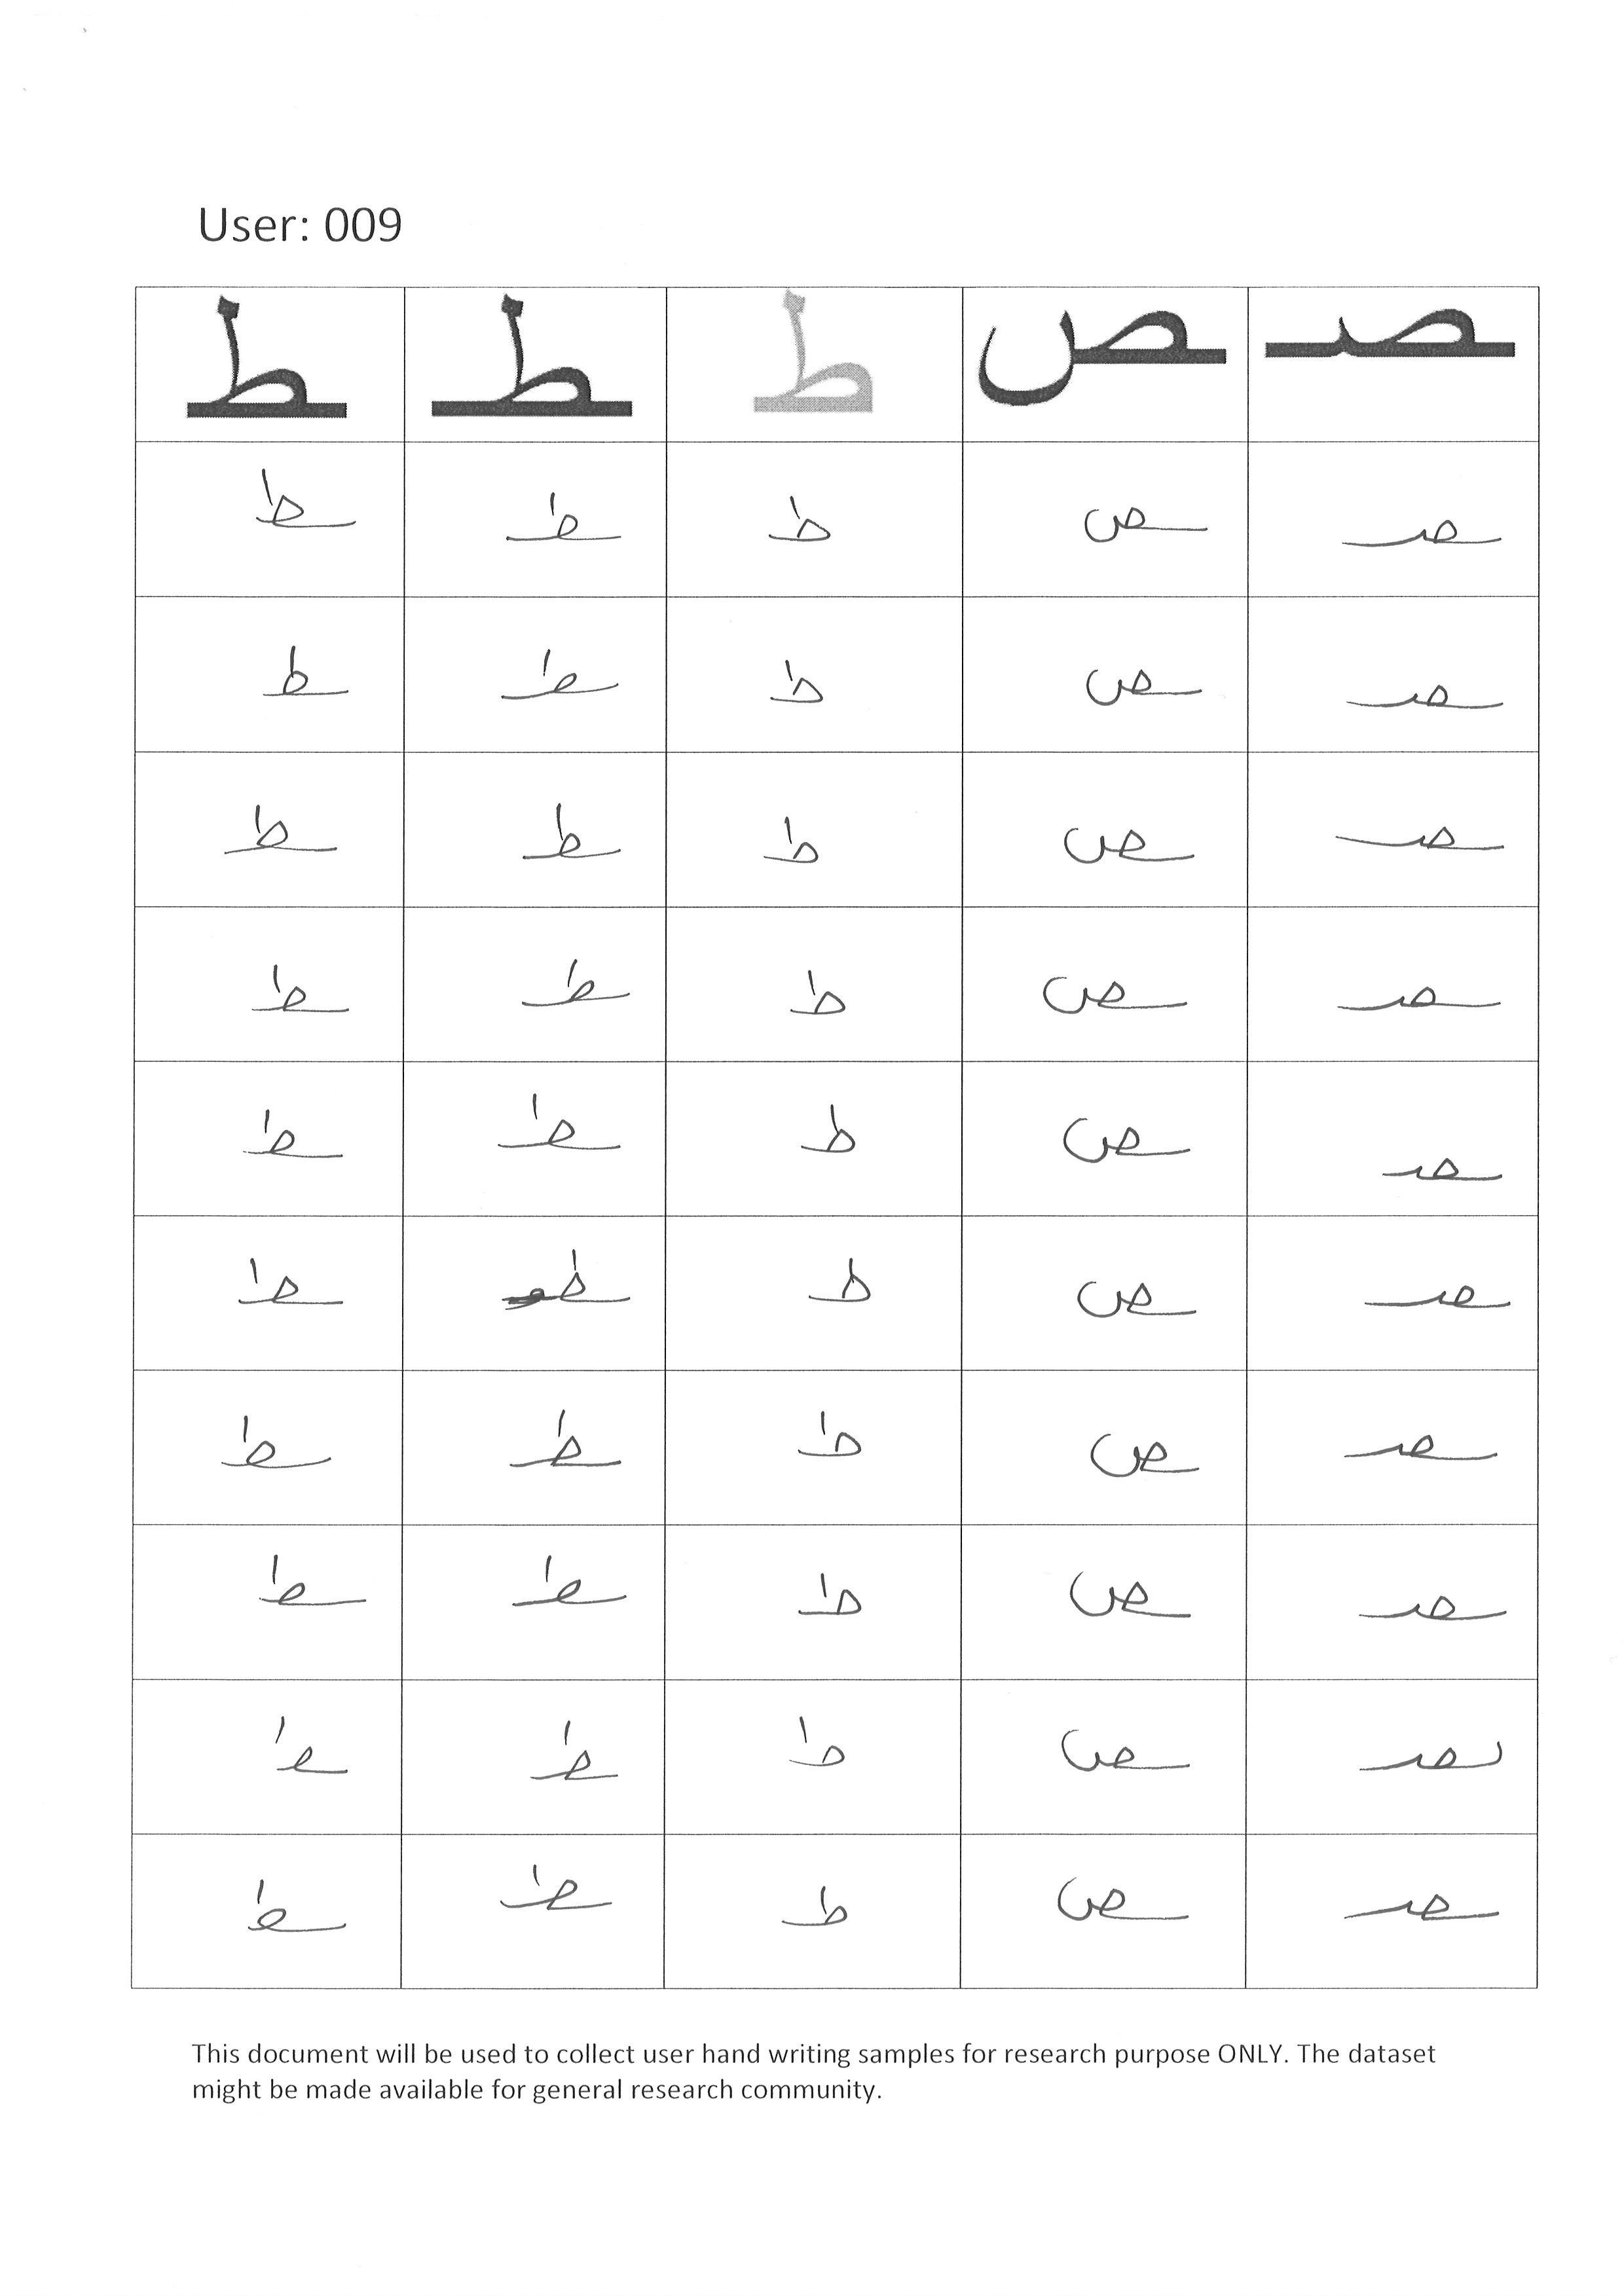 User: 009
ـصـ ـص ط ـطـ ـط
ـصـ ـص ط ـطـ ـط
ـصـ ـص ط ـطـ ـط
ـصـ ـص ط ـطـ ـط
ـصـ ـص ط ـطـ ـط
ـصـ ـص ط ـطـ ـط
ـصـ ـص ط ـطـ ـط
ـصـ ـص ط ـطـ ـط
ـصـ ـص ط ـطـ ـط
ـصـ ـص ط ـطـ ـط
ـصـ ـص ط ـطـ ـط
This document will be used to collect user hand writing samples for research purpose ONLY. The dataset
might be made available for general research community.